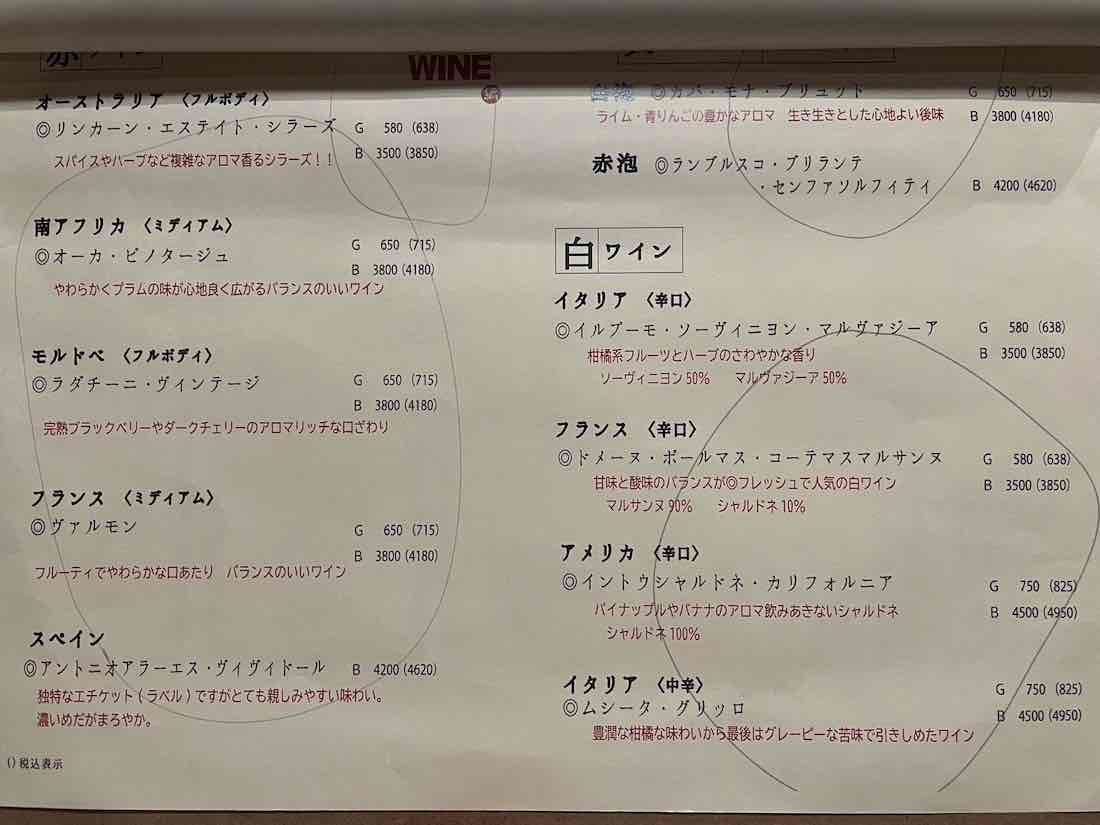 赤ワイン
WINE
オーストラリア 〈フルボディ〉
◎リンカーン・エステイト・シラーズ G 580 (638)
B 3500 (3850)
スパイスやハーブなど複雑なアロマ香るシラーズ！！
南アフリカ 〈ミディアム〉
G 650 (715)
◎オーカ・ピノタージュ
B 3800 (4180)
やわらかくプラムの味が心地良く広がるバランスのいいワイン
モルドベ 〈フルボディ〉
◎ラダチーニ・ヴィンテージ G 650 (715)
B 3800 (4180)
完熟ブラックベリーやダークチェリーのアロマリッチな口ざわり
フランス 〈ミディアム〉
◎ヴァルモン G 650 (715)
B 3800 (4180)
フルーティでやわらかな口あたり バランスのいいワイン
スペイン
◎アントニオアラーエス・ヴィヴィドール B 4200 (4620)
独特なエチケット(ラベル)ですがとても親しみやすい味わい。
濃いめだがまろやか。
()税込表示
白泡 ◎カバ・モナ・ブリュット G 650 (715)
ライム・青りんごの豊かなアロマ 生き生きとした心地よい後味 B 3800 (4180)
赤泡 ◎ランブルスコ・ブリランテ
・センファソルフィティ B 4200 (4620)
白ワイン
イタリア 〈辛口〉
◎イルブーモ・ソーヴィニヨン・マルヴァジーア G 580 (638)
B 3500 (3850)
柑橘系フルーツとハーブのさわやかな香り
ソーヴィニヨン50% マルヴァジーア50%
フランス 〈辛口〉
◎ドメーヌ・ポールマス・コーテマスマルサンヌ G 580 (638)
B 3500 (3850)
甘味と酸味のバランスが◎フレッシュで人気の白ワイン
マルサンヌ90% シャルドネ10%
アメリカ 〈辛口〉
◎イントゥシャルドネ・カリフォルニア G 750 (825)
パイナップルやバナナのアロマ飲みあきないシャルドネ B 4500 (4950)
シャルドネ100%
イタリア 〈中辛〉
G 750 (825)
◎ムシータ・グリッロ
B 4500 (4950)
豊潤な柑橘な味わいから最後はグレーピーな苦味で引きしめたワイン